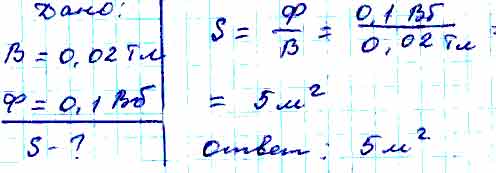 Дано:
B = 0,02 Тл
Ф = 0,1 Вб
S - ?
S = Ф/B = 0,1 Вб/0,02 Тл =
= 5 м²
Ответ: 5 м²